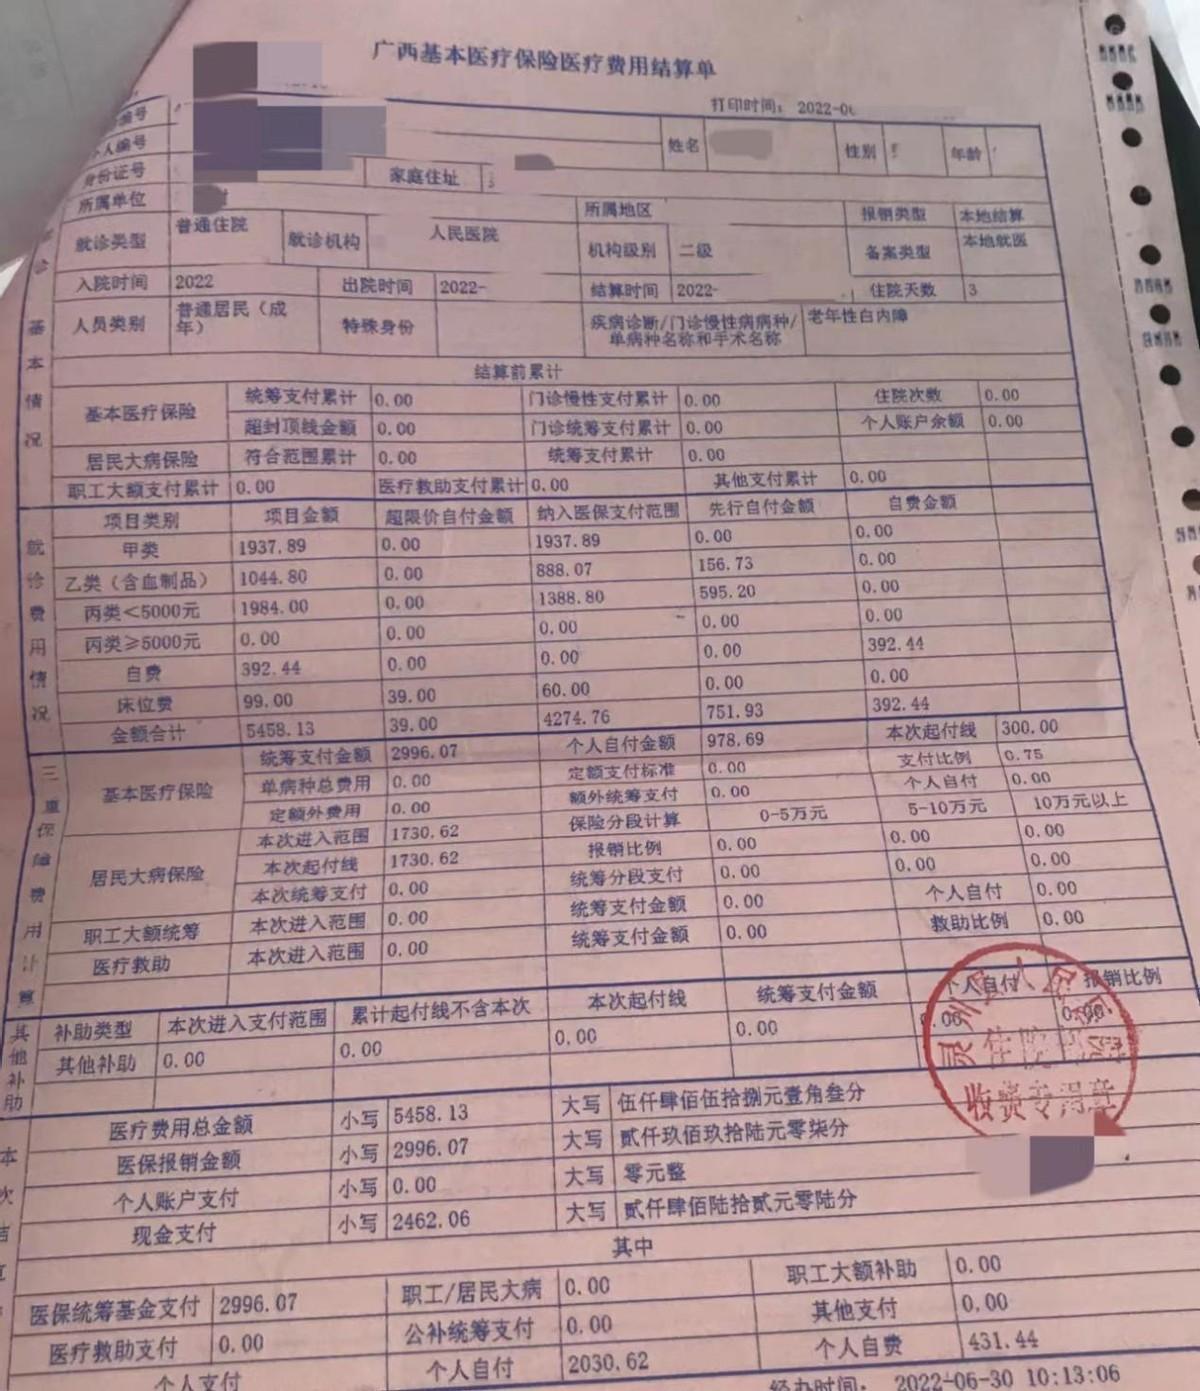 广西基本医疗保险医疗费用结算单
打印时间: 2022-0
编号
人编号 姓名 性别 年龄
身份证号 家庭住址
所属单位 所属地区 报销类型 本地结算
就诊类型 普通住院 就诊机构 人民医院 机构级别 二级 备案类型 本地就医
入院时间 2022 出院时间 2022- 结算时间 2022- 住院天数 3
人员类别 普通居民（成年） 特殊身份 疾病诊断/门诊慢性病病种/单病种名称和手术名称 老年性白内障
基本情况
结算前累计
基本医疗保险 统筹支付累计 0.00 门诊慢性支付累计 0.00 住院次数 0.00
超封顶线金额 0.00 门诊统筹支付累计 0.00 个人账户余额 0.00
居民大病保险 符合范围累计 0.00 统筹支付累计 0.00
职工大额支付累计 0.00 医疗救助支付累计 0.00 其他支付累计 0.00
就诊费用情况
项目类别 项目金额 超限价自付金额 纳入医保支付范围 先行自付金额 自费金额
甲类 1937.89 0.00 1937.89 0.00 0.00
乙类（含血制品） 1044.80 0.00 888.07 156.73 0.00
丙类<5000元 1984.00 0.00 1388.80 595.20 0.00
丙类≥5000元 0.00 0.00 0.00 0.00 0.00
自费 392.44 0.00 0.00 0.00 392.44
床位费 99.00 39.00 60.00 0.00 0.00
金额合计 5458.13 39.00 4274.76 751.93 392.44
三重保障费用计算
基本医疗保险 统筹支付金额 2996.07 个人自付金额 978.69 本次起付线 300.00
单病种总费用 0.00 定额支付标准 0.00 支付比例 0.75
定额外费用 0.00 额外统筹支付 0.00 个人自付 0.00
居民大病保险 本次进入范围 1730.62 保险分段计算 0-5万元 5-10万元 10万元以上
本次起付线 1730.62 报销比例 0.00 0.00 0.00
本次统筹支付 0.00 统筹分段支付 0.00 0.00 0.00
职工大额统筹 本次进入范围 0.00 统筹支付金额 0.00 个人自付 0.00
医疗救助 本次进入范围 0.00 统筹支付金额 0.00 救助比例 0.00
其他补助
补助类型 本次进入支付范围 累计起付线不含本次 本次起付线 统筹支付金额 个人自付 报销比例
其他补助 0.00 0.00 0.00 0.00 0.00 0.00
收费专用章
本次
医疗费用总金额 小写 5458.13 大写 伍仟肆佰伍拾捌元壹角叁分
医保报销金额 小写 2996.07 大写 贰仟玖佰玖拾陆元零柒分
个人账户支付 小写 0.00 大写 零元整
现金支付 小写 2462.06 大写 贰仟肆佰陆拾贰元零陆分
其中
医保统筹基金支付 2996.07 职工/居民大病 0.00 职工大额补助 0.00
医疗救助支付 0.00 公补统筹支付 0.00 其他支付 0.00
个人支付 个人自付 2030.62 个人自费 431.44
经办时间: 2022-06-30 10:13:06